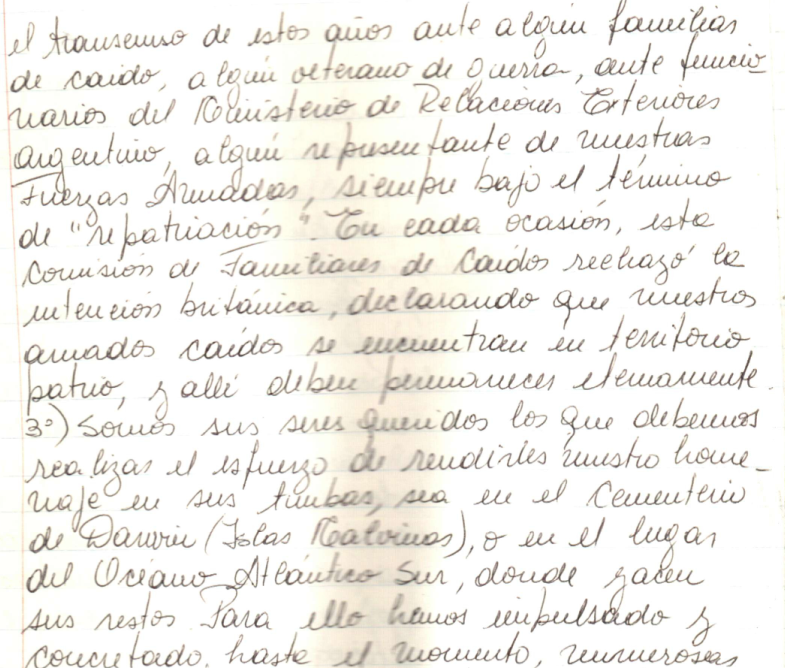 el transcurso de estos años ante algún familias
de caído, algún veterano de guerra, ante funcio-
narios del Ministerio de Relaciones Exteriores
Argentino, algún representante de nuestras
Fuerzas Armadas, siempre bajo el término
de "repatriación". En cada ocasión, esta
Comisión de Familiares de Caídos rechazó la
intención británica, declarando que nuestros
amados caídos se encuentran en territorio
patrio, y allí deben permanecer eternamente.
3º) Somos sus seres queridos los que debemos
realizar el esfuerzo de rendirles nuestro home-
naje en sus tumbas, sea en el Cementerio
de Darwin (Islas Malvinas), o en el lugar
del Océano Atlántico Sur, donde yacen
sus restos. Para ello hemos impulsado y
concretado, hasta el momento, numerosas